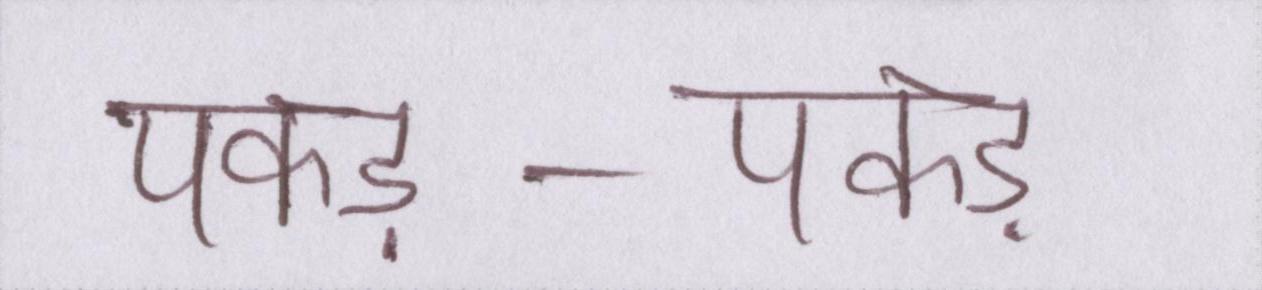 पकड़ - पकड़